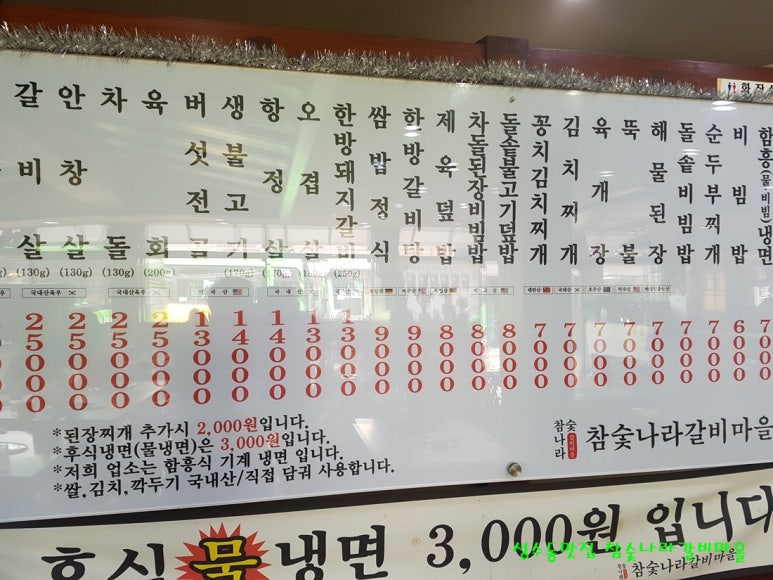 갈비살 (130g) 25000
안창살 (130g) 25000
차돌 (130g) 25000
육회 (200g) 25000
버섯전골 13000
생불고기 (170g) 14000
항정살 14000
오겹살 13000
한방돼지갈비 (250g) 13000
쌈밥정식 9000
한방갈비탕 9000
제육덮밥 8000
차돌된장비빔밥 8000
돌솥불고기덮밥 8000
꽁치김치찌개 7000
김치찌개 7000
육개장 7000
뚝불 7000
해물된장 7000
돌솥비빔밥 7000
순두부찌개 7000
비빔밥 6000
함흥(물·비빔)냉면 7000
국내산육우 국내산육우
*된장찌개 추가시 2,000원입니다.
*후식냉면(물냉면)은 3,000원입니다.
*저희 업소는 함흥식 기계 냉면 입니다.
*쌀,김치,깍두기 국내산/직접 담궈 사용합니다.
참숯나라 참숯나라갈비마을
후식 물냉면 3,000원 입니다
참숯나라갈비마을
성수동맛집 참숯나라 갈비마을